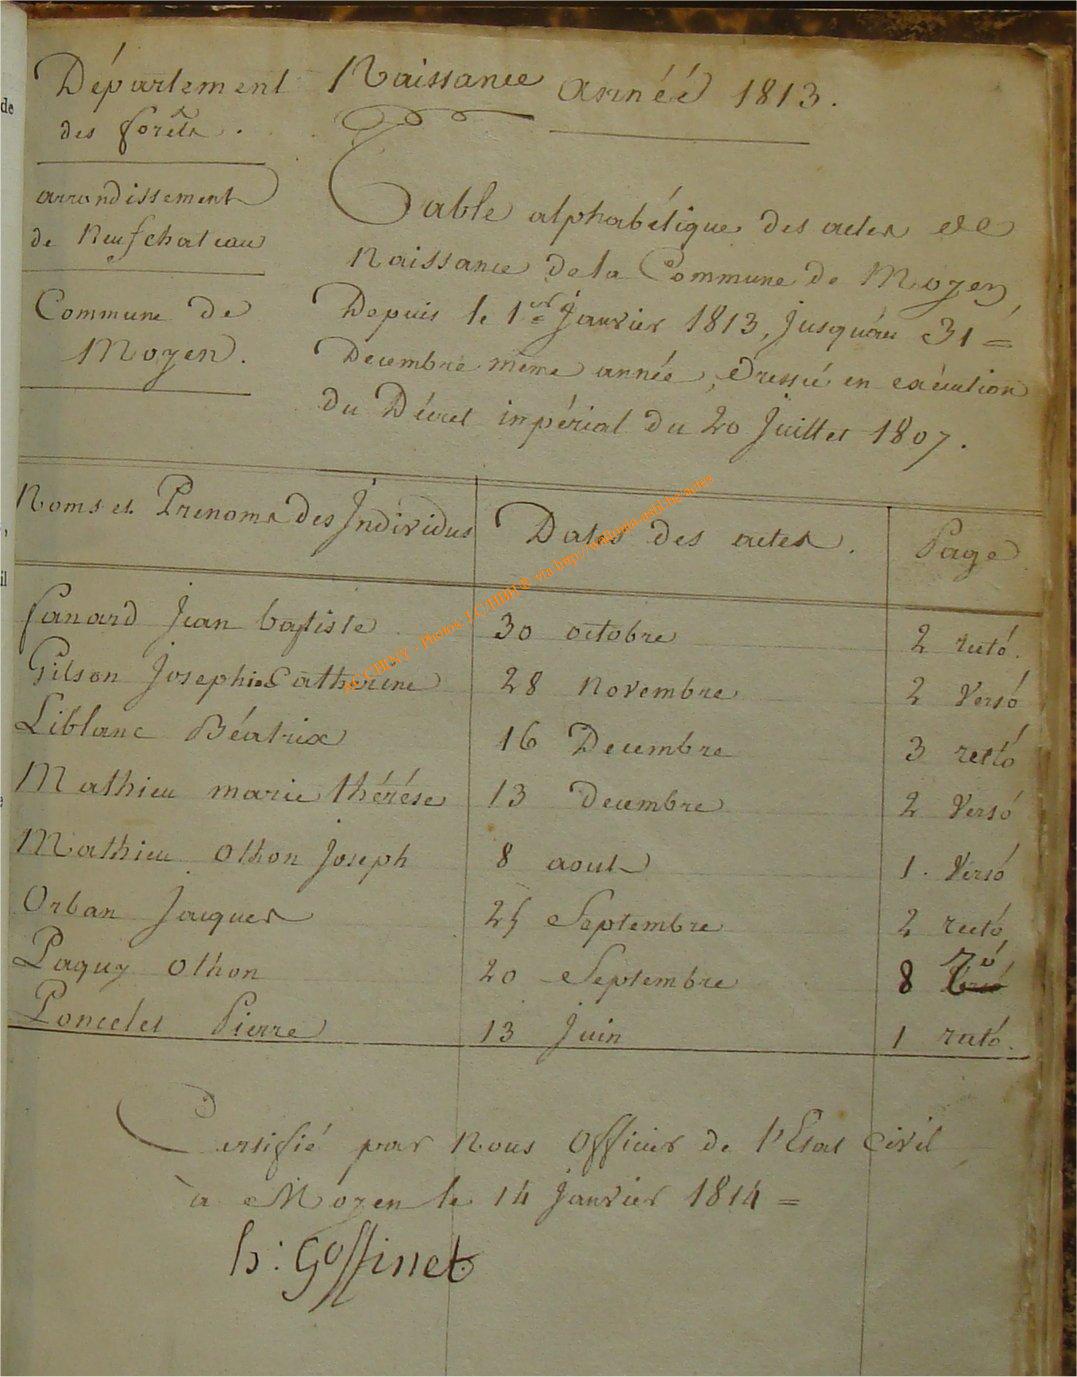 Département
des forêts.
arrondissement
de Neufchateau
Commune de
Moyen.
Naissance année 1813.
Table alphabétique des actes de
Naissance de la Commune de Moyen,
Depuis le 1er Janvier 1813, Jusqu'au 31 =
Decembre même année, Dressé en exécution
du Décret impérial du 20 Juillet 1807.
Noms et Prenoms des Individus Dates des actes. Page
fanard Jean baptiste 30 octobre 2 rectó.
Gilson Josephine Catherine 28 Novembre 2 Versó
Liblanc Béatrix 16 Decembre 3 rectó
Mathieu marie thérése 13 Decembre 2 Versó
Mathieu othon Joseph 8 aout 1. Versó
Orban Jacques 25 Septembre 2 rectó
Paquy othon 20 Septembre 8
Poncelet Pierre 13 Juin 1 rectó.
Certifié par Nous officier de l'Etat Civil
à Moyen le 14 Janvier 1814 =
h: Goffinet